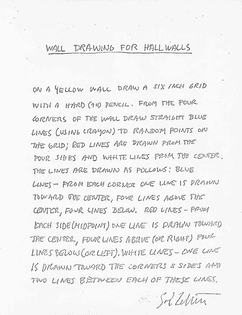 WALL DRAWING FOR HALLWALLS
ON A YELLOW WALL DRAW A SIX INCH GRID
WITH A HARD (7H) PENCIL. FROM THE FOUR
CORNERS OF THE WALL DRAW STRAIGHT BLUE
LINES (USING CRAYON) TO RANDOM POINTS ON
THE GRID; RED LINES ARE DRAWN FROM THE
FOUR SIDES AND WHITE LINES FROM THE CENTER.
THE LINES ARE DRAWN AS FOLLOWS: BLUE
LINES – FROM EACH CORNER ONE LINE IS DRAWN
TOWARD THE CENTER, FOUR LINES ABOVE THE
CENTER, FOUR LINES BELOW. RED LINES – FROM
EACH SIDE (MIDPOINT) ONE LINE IS DRAWN TOWARD
THE CENTER, FOUR LINES ABOVE (OR RIGHT) FOUR
LINES BELOW (OR LEFT). WHITE LINES – ONE LINE
IS DRAWN TOWARD THE CORNERS & SIDES AND
TWO LINES BETWEEN EACH OF THESE LINES.
Sol LeWitt